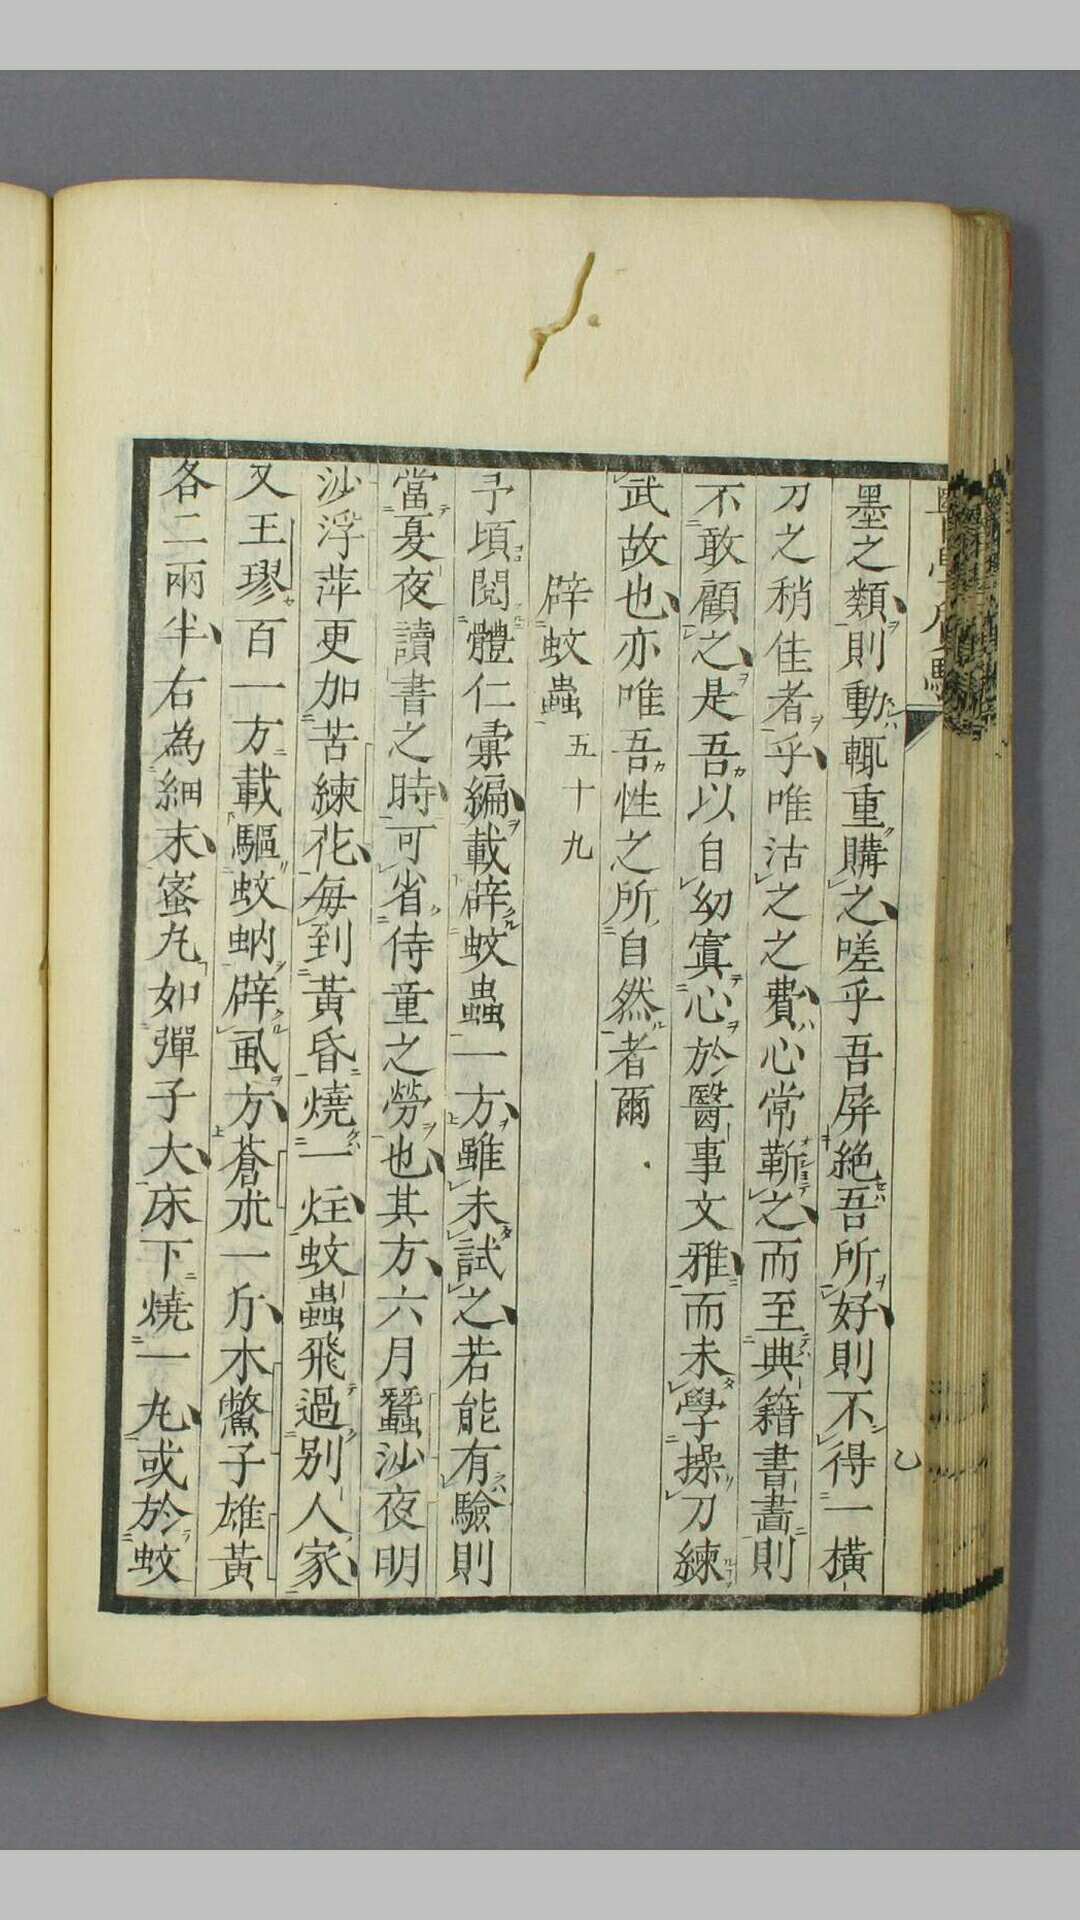 墨之類則動輒重購之嗟乎吾屏絕吾所好則不得一橫
刀之稍佳者乎唯沽之之費心常靳之而至典籍書畫則
不敢顧之是吾以自幼寘心於醫事文雅而未學操刀練
武故也亦唯吾性之所自然者爾
辟蚊蟲 五十九
予頃閱體仁彙編載辟蚊蟲一方雖未試之若能有驗則
當夏夜讀書之時可省侍童之勞也其方六月蠶沙夜明
沙浮萍更加苦練花每到黃昏燒一炷蚊蟲飛過別人家
又王璆百一方載驅蚊蚋辟虱方蒼朮一斤木鱉子雄黃
各二兩半右為細末蜜丸如彈子大床下燒一丸或於蚊